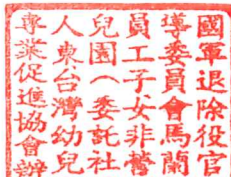 國軍退除役官
導委員會馬蘭
員工子女非營
兒園(委託社
人東台灣幼兒
專業促進協會辦